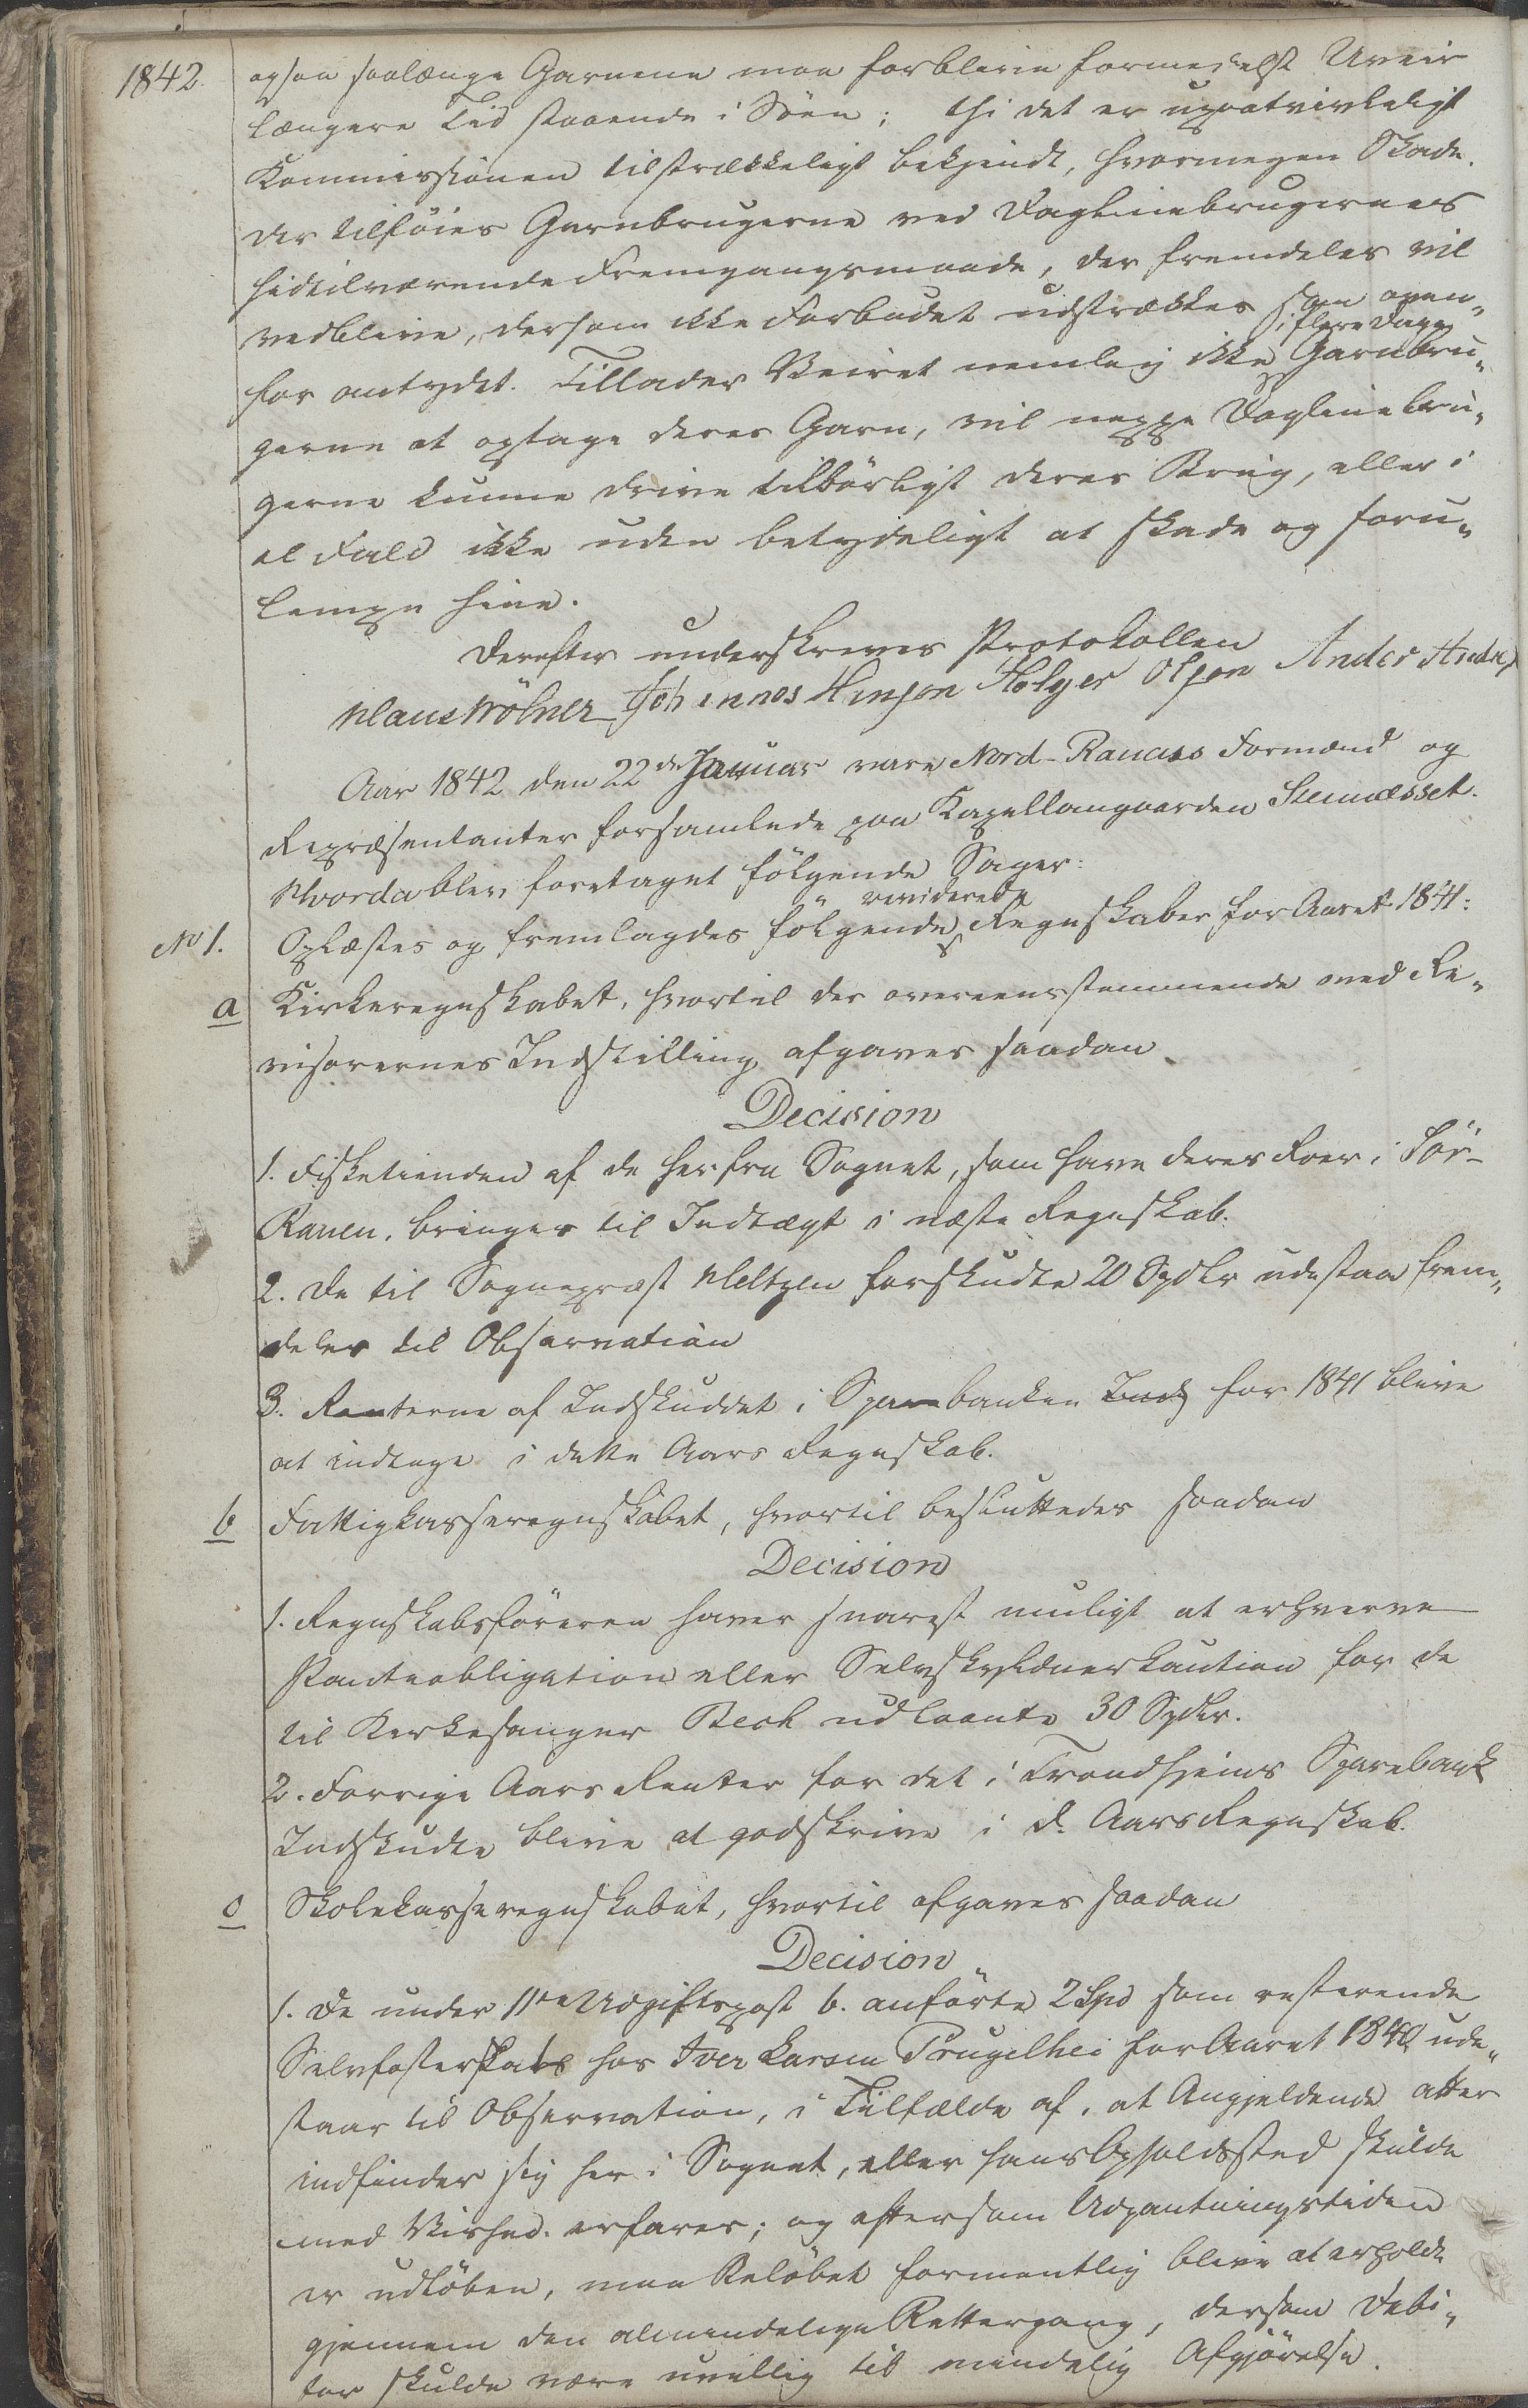 1842.
ogsaa saalænge Garnene maa forblive formedelst Uveir
længere Tid staaende i Söen; thi det er upaatvivleligt
Kommissionen tilstrækkeligt bekjendt, hvormegen Skade,
der tilföies Garnbrugerne ved Daglinebrugernes
hidtilværende Fremgangsmaade, der fremdeles vil
vedblive, dersom ikke Forbudet udstrækkes som oven-
for antydet. Tillader Veiret nemlig ikke i flere Dage Garnbru-
gerne at optage deres Garn, vil neppe Daglinebru-
gerne kunne drive tilbörligt deres Brug, eller i
al Fald ikke uden betydeligt at skade og foru-
lempe hine.
Derefter underskreves Protokollen
Hans Wölner Johannes Hansen Holger Olsen Ander Andre
Aar 1842 den 22de Januar vare Nord-Ranens Formænd og
Repræsentanter forsamlede paa Kapellangaarden Stennæsset.
Hvorda blev foretaget fölgende Sager:
No 1. Oplæstes og fremlagdes fölgende reviderede Regnskaber for Aaret 1841:
a Kirkeregnskabet, hvortil der overeensstemmende med Re-
visorernes Indstilling afgaves saadan
Decision
1. Fisketienden af de herfra Sognet, som have deres Roer i Sör-
Ranen, bringes til Indtægt i næste Regnskab.
2. De til Sognepræst Heltzen forskudte 20 Spdlr udestaa frem-
deles til Observation
3. Renterne af Indskuddet i Sparebanken Inds for 1841 blive
at indtage i dette Aars Regnskab.
b Fattigkasseregnskabet, hvortil besluttedes saadan
Decision
1. Regnskabsföreren haver snarest muligt at erhverve
Panteobligation eller Selvskyldnerkaution for de
til Kirkesanger Bech udlaante 30 Spdlr.
2. Forrige Aars Renter for det i Trondhjems Sparebank
Indskudte blive at godskrive i d. Aars Regnskab.
c Skolekasseregnskabet, hvortil afgaves saadan
Decision
1. De under 11te Udgiftspost b. anförte 2 Spd som resterende
Selvfosterskat hos Iver Larsen Prugelhei for Aaret 1840 ude-
staar til Observation, i Tilfælde af, at Angjeldende atter
indfinder sig her i Sognet, eller hans Opholdssted skulde
med Vished erfares; og eftersom Udpantningstiden
er udlöben, maa Belöbet formentlig blive at erholde
gjennem den almindelige Rettergang, dersom Debi-
tor skulde være uvillig til mindelig Afgjörelse.